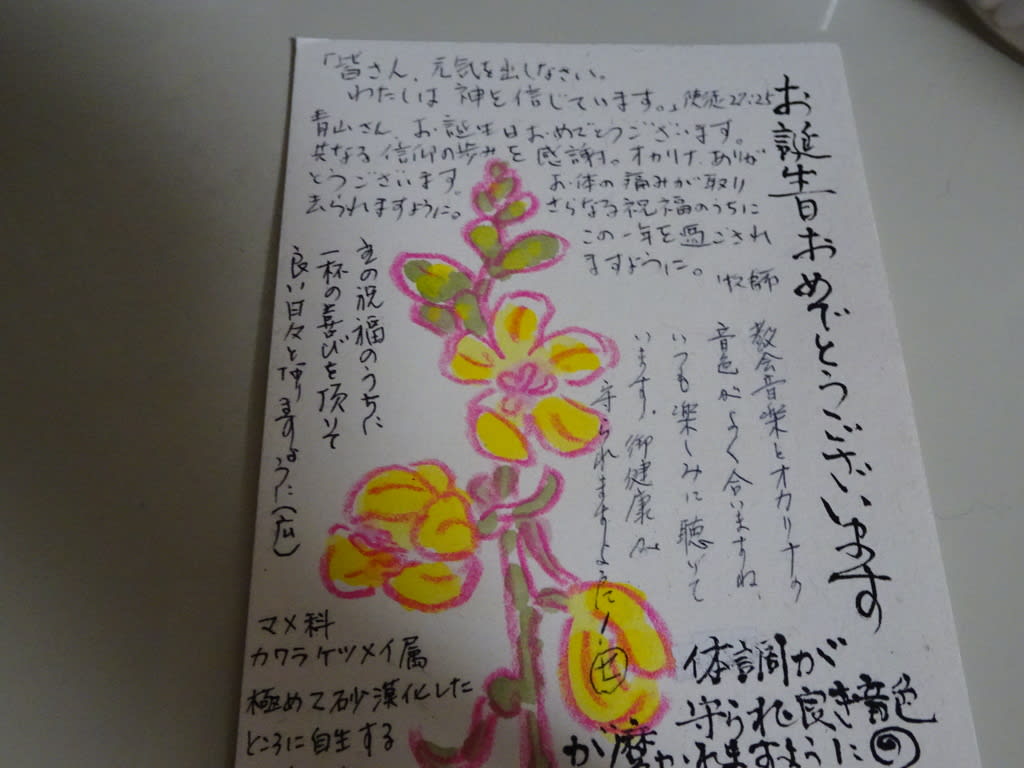 お誕生日おめでとうございます
「皆さん、元気を出しなさい。
わたしは神を信じています。」使徒27:25
青山さん、お誕生日おめでとうございます。
共なる信仰の歩みを感謝。オカリナ、ありが
とうございます。お体の痛みが取り
去られますように。さらなる祝福のうちに
この一年を過ごされ
ますように。
牧師
教会音楽とオカリナの
音色がよく合いますね、
いつも楽しみに聴いて
います。御健康が
守られますように!
主の祝福のうちに
一杯の喜びを頂いて
良い日々と
ますように(広)
マメ科
カワラケツメイ属
極めて砂漠化した
ところに自生する
体調が
守られ良き音色
が磨かれますように